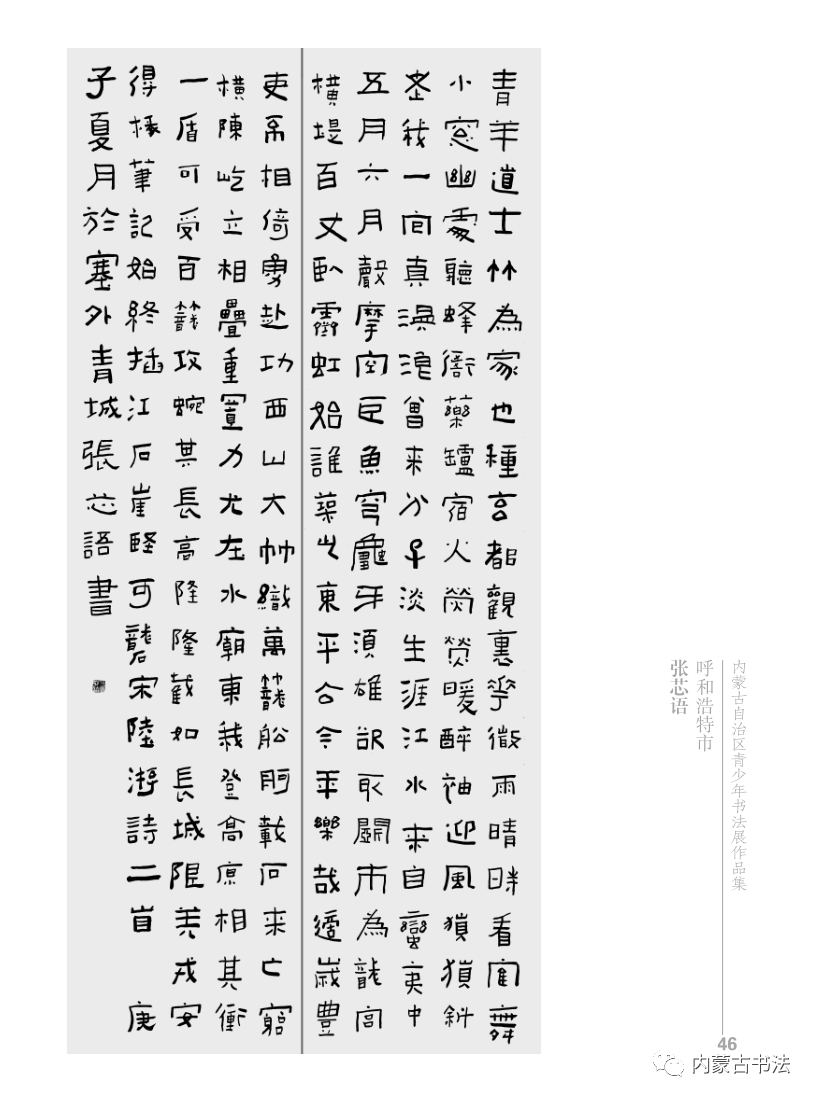 青羊道士竹為家也種玄都觀裏花微雨晴時看鶴舞
小窗幽處聽蜂衙藥罏宿火熒熒暖醉袖迎風獵獵斜
老我一官真漫浪會來分子淡生涯江水來自蠻夷中
五月六月聲摩空巨魚穹龜牙須雄欲取闤市為龍宮
橫堤百丈臥霽虹始誰築此東平公今年樂哉適歲豐
吏不相倚勇赴功西山大竹織萬籠船舸載石來亡窮
橫陳屹立相疊重置力尤在水廟東我登高原相其衝
一盾可受百箭攻蜿其長高隆隆截如長城限羌戎安
得椽筆記始終插江石崖堅可礱宋陸游詩二首 庚
子夏月於塞外青城張芯語書
内蒙古自治区青少年书法展作品集
呼和浩特市
张芯语
46
内蒙古书法